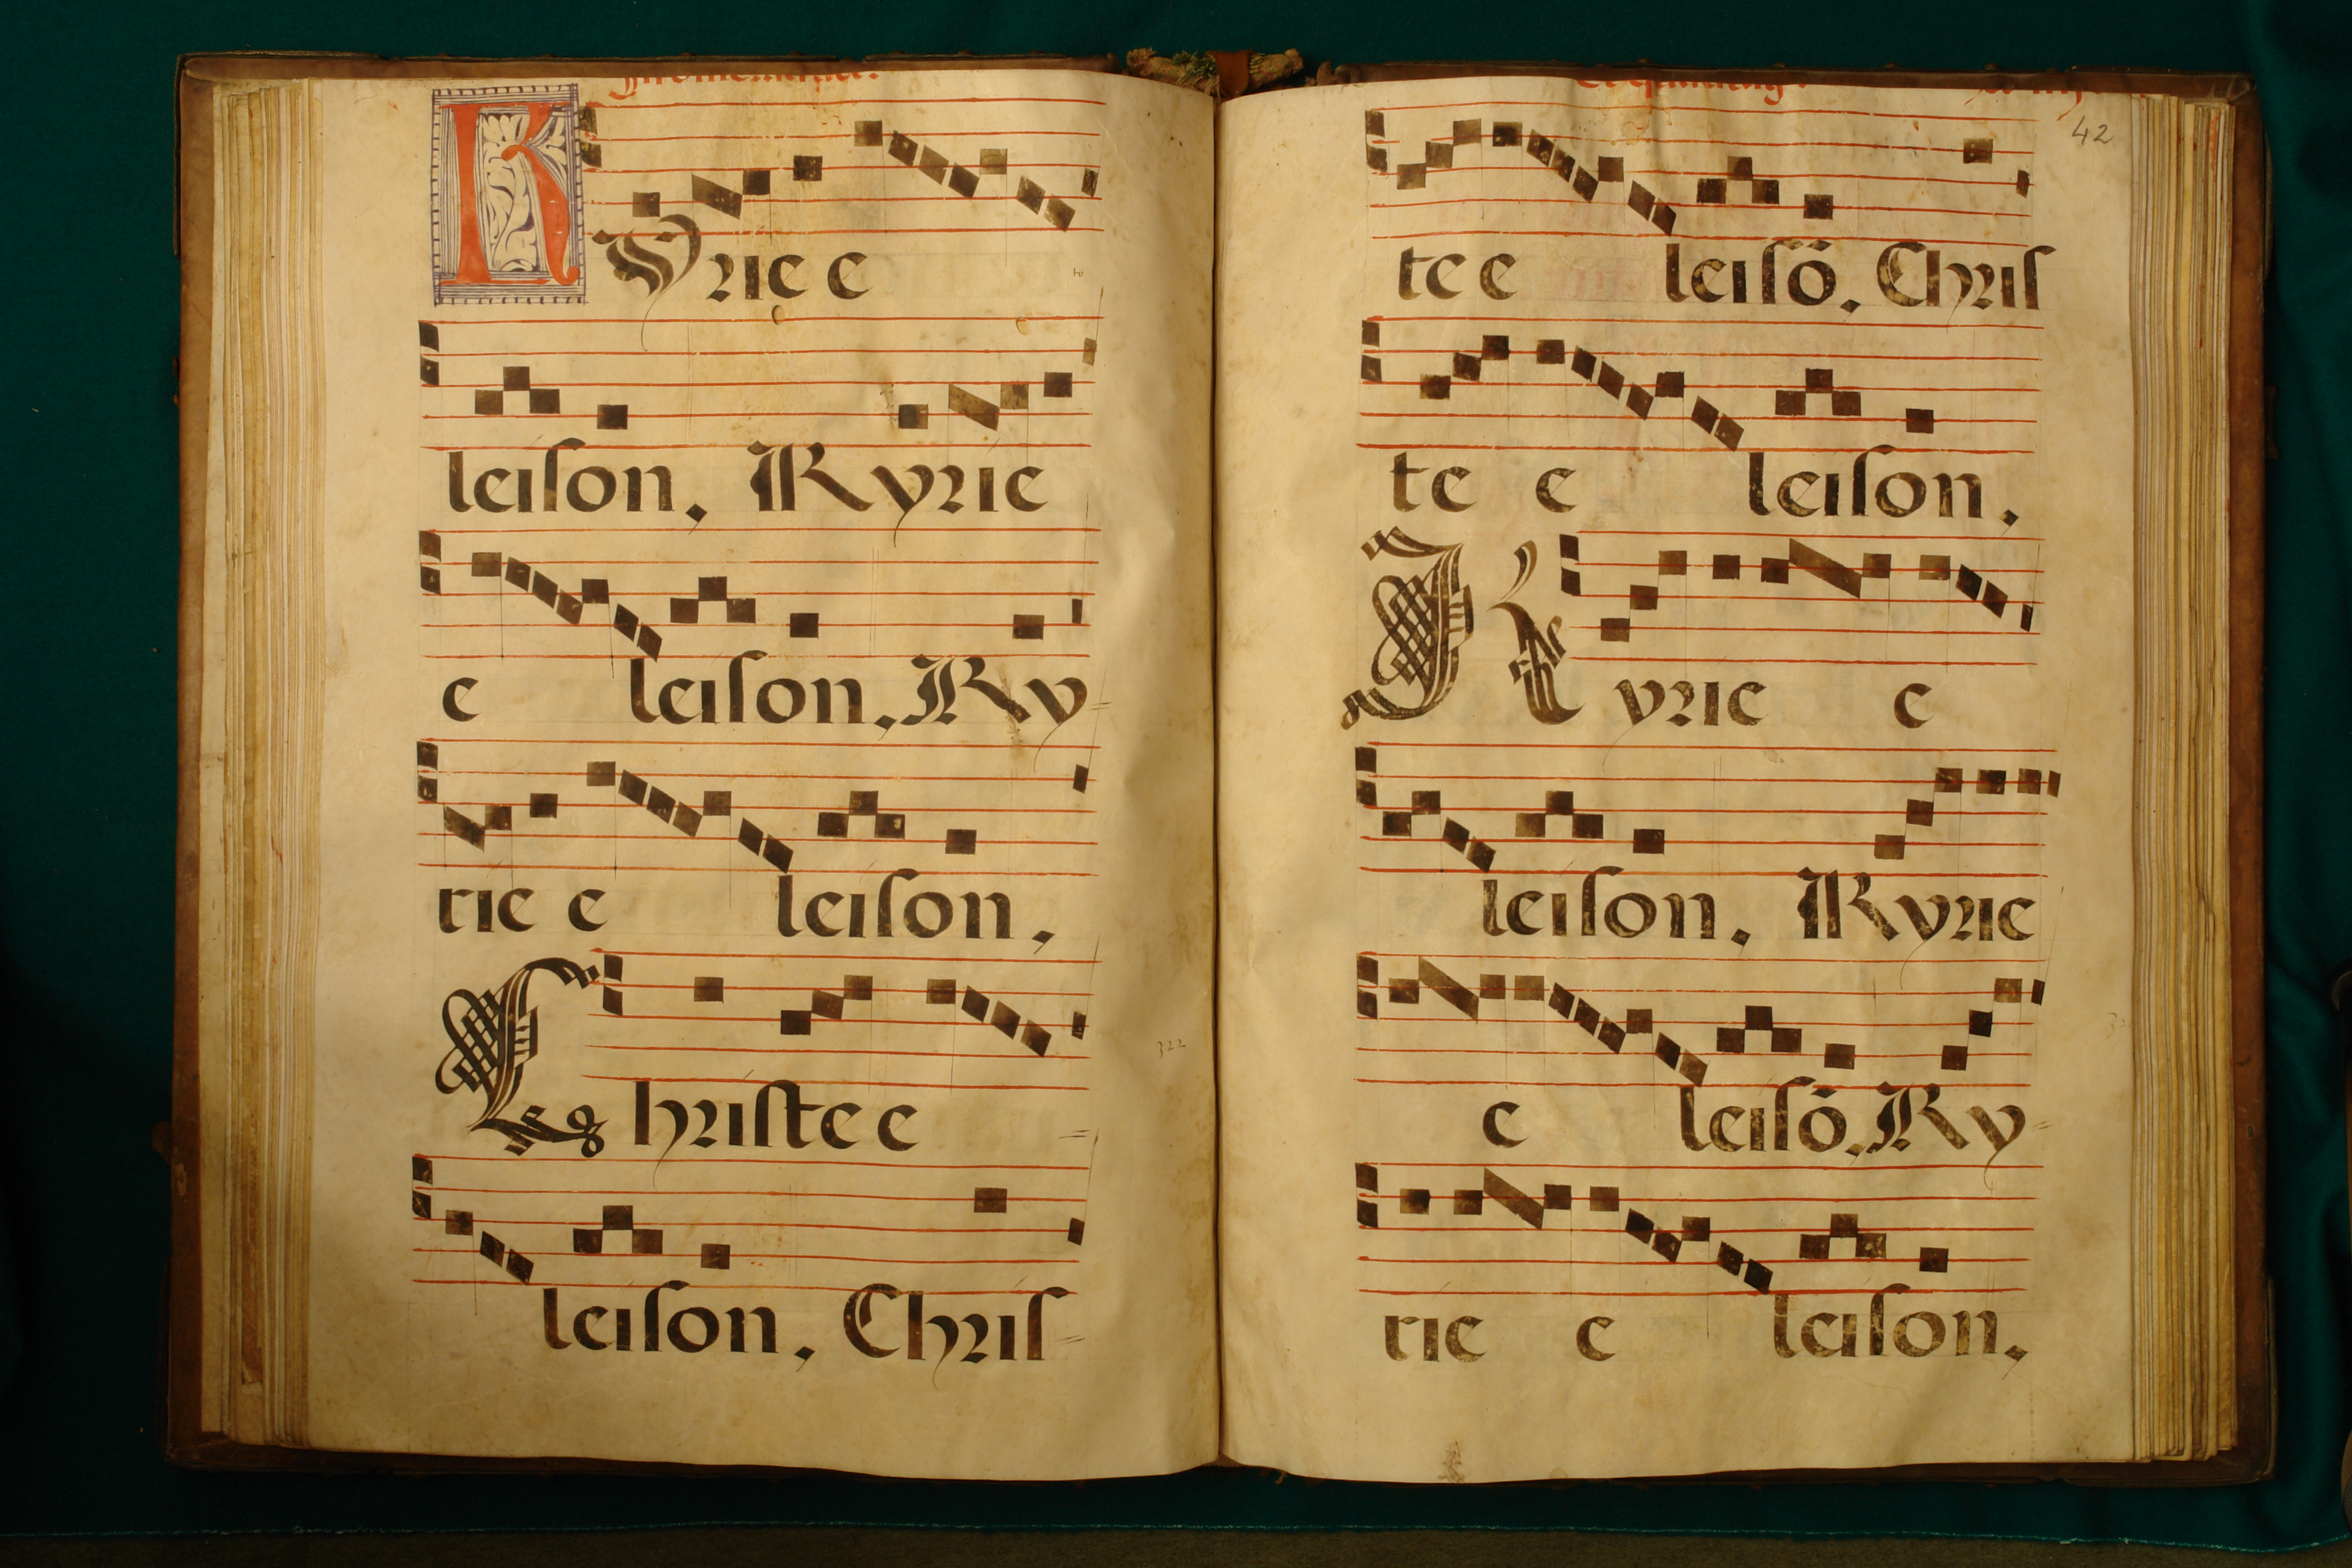 Kyrie e
leison, Kyrie
e leison, Ky=
rie e leison,
Christe e
leison, Chris=
42
te e leisõ, Chris
te e leison,
Kyrie e
leison, Kyrie
e leisõ, Ky=
rie e leison,
322